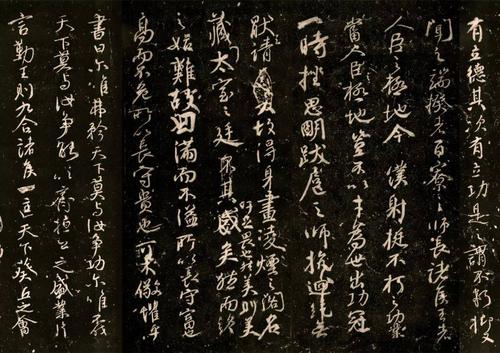 有立德其次有立功是之謂不朽抑又
聞之端揆者百寮之師長諸侯王者
人臣之極地今僕射挺不朽之功業
當人臣極地豈不以才為世出功冠
一時挫思明跋扈之師抗迴紇無
猒之請故得身畫凌煙之閣名
藏太室之廷吁其盛矣然而終
之始難故曰滿而不溢所以長守富也
高而不危所以長守貴也可不儆懼乎
書曰尔唯弗矜天下莫与汝爭功尔唯不伐
天下莫与汝爭能以齊桓公之盛業片
言勤王則九合諸侯一匡天下葵丘之會